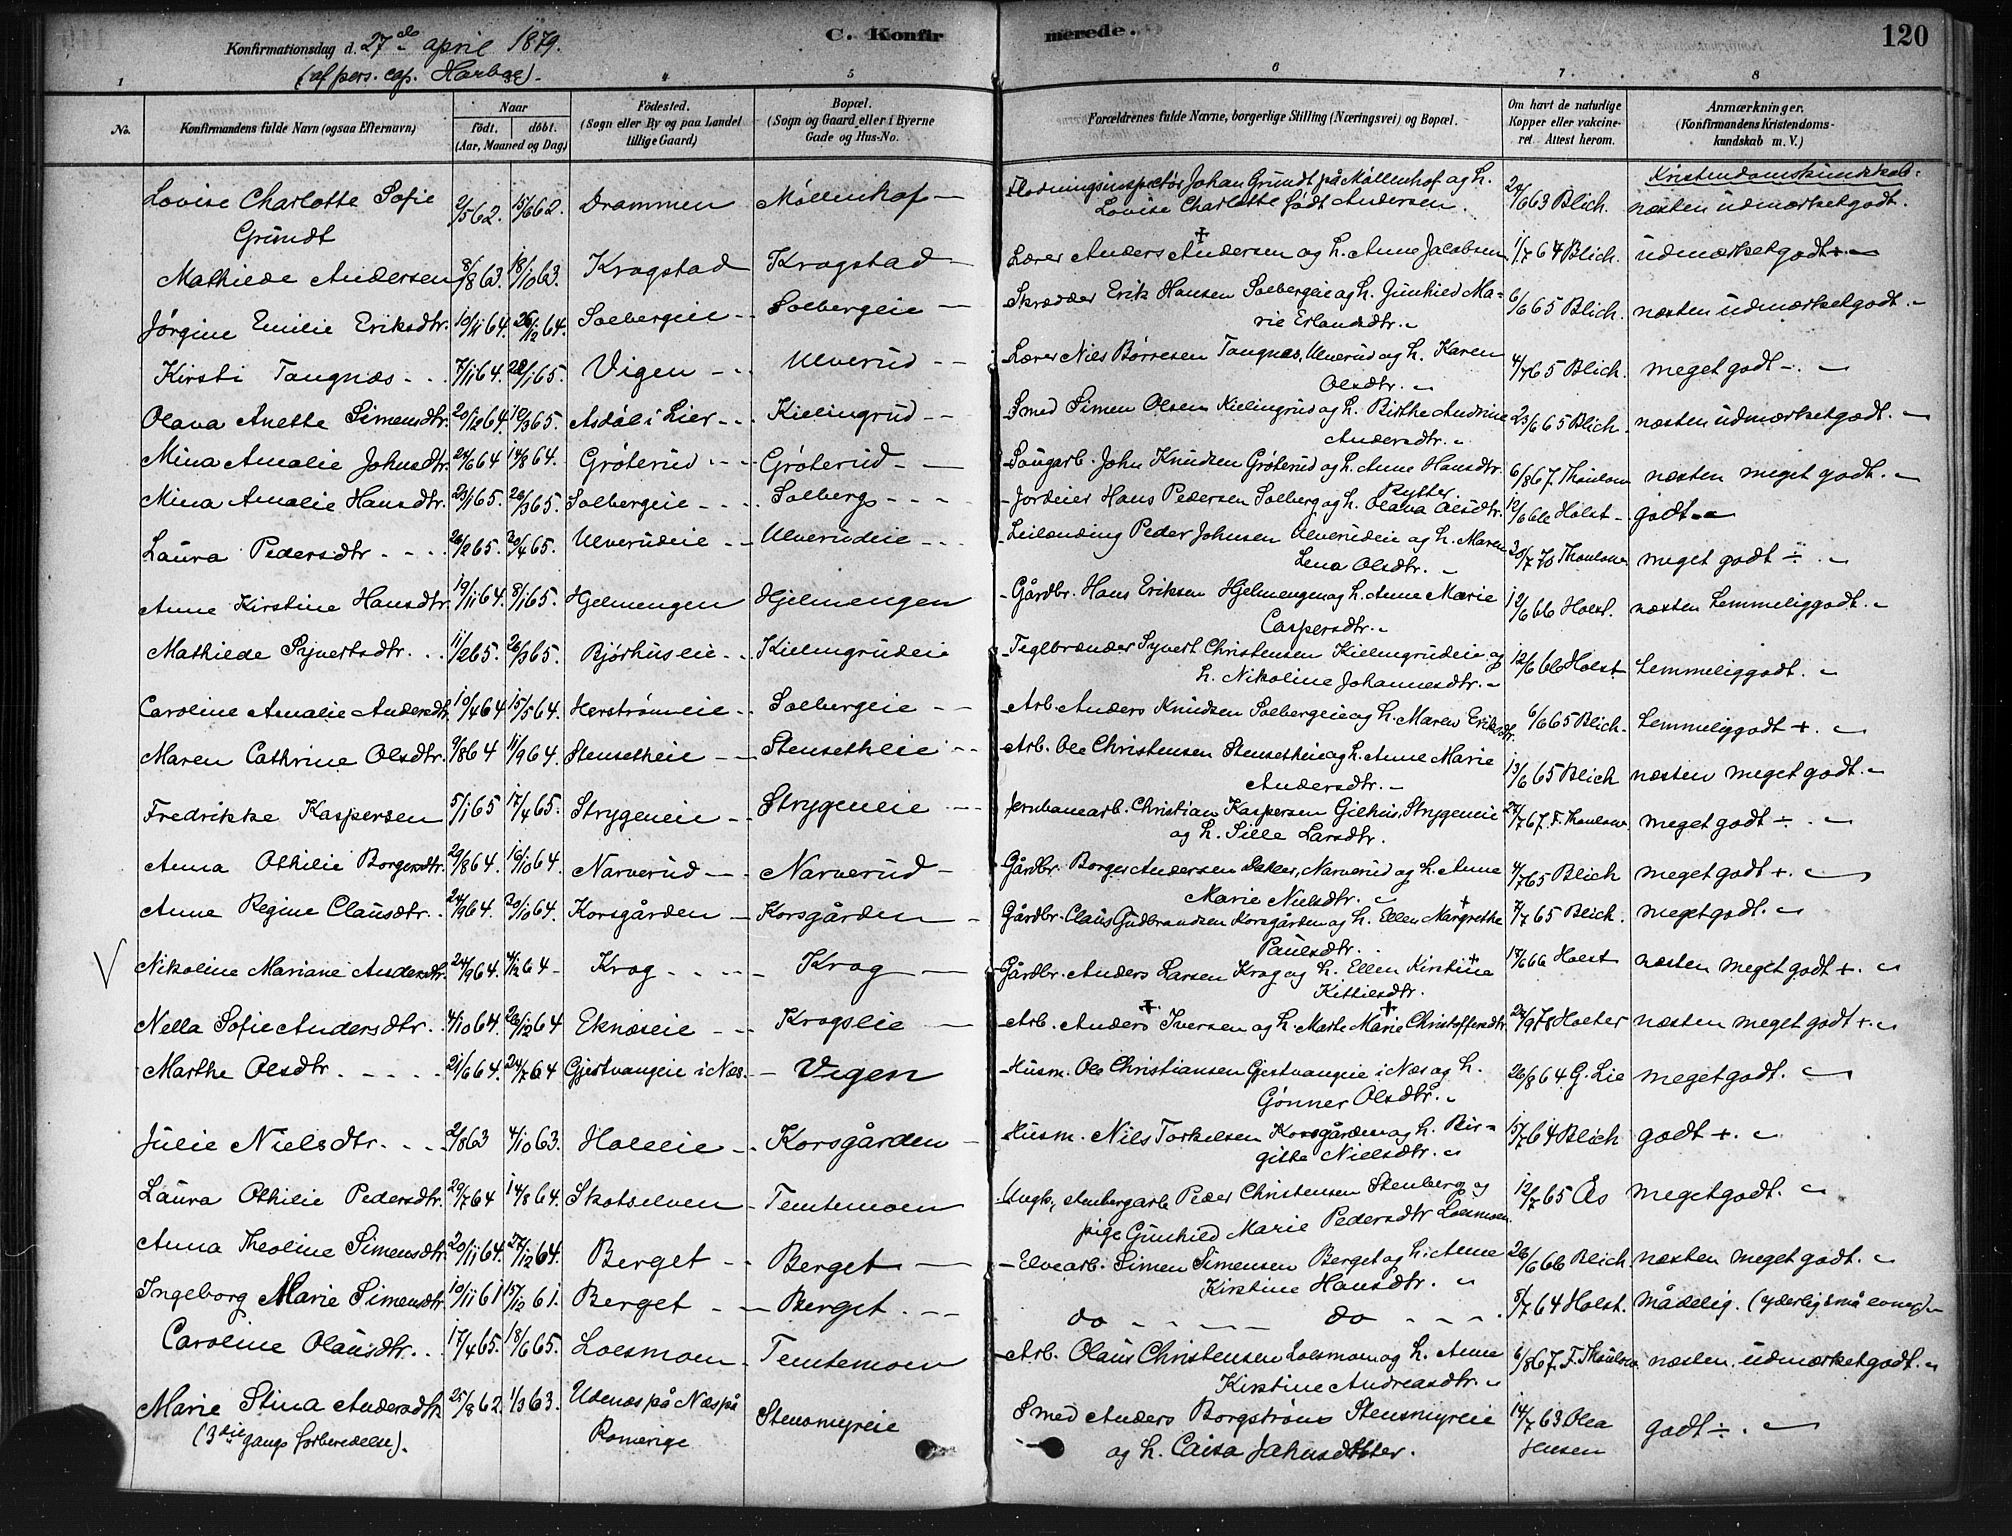 Konfirmationsdag d. 27de april 1879.
(af pers. cap. Harboe).
C. Konfirmerede.
120
1 4 5 6 7. 8
No.
Konfirmandens fulde Navn (ogsaa Efternavn)
Naar
født. døbt.
(Aar, Maaned og Dag)
Fødested.
(Sogn eller By og paa Landet
tillige Gaard)
Bopæl.
(Sogn og Gaard eller i Byerne
Gade og Hus-No.
Forældrenes fulde Navne, borgerlige Stilling (Næringsvei) og Bopæl.
Om havt de naturlige
Kopper eller vakcine-
ret. Attest herom.
Anmærkninger.
(Konfirmandens Kristendoms-
kundskab m. V.)
Kristendomskundskab:
Lovise Charlotte Sofie 2/5 62. 15/6 62. Drammen Møllenhof — Flødningsinspektør Johan Grundt på Møllenhof og h. 24/6 63 Blich. næsten udmærketgodt.
Grundt Lovise Charlotte født Andersen.
Mathilde Andersen 8/8 63. 18/10 63. Krogstad Krogstad Lærer Anders Andersen og h. Anne Jacobsen 1/7 64 Blich. udmærketgodt +.
Jørgine Emilie Eriksdtr. 10/11 64. 26/12 64. Solbergeie Solbergeie Skrædder Erik Hansen Solbergeie og h. Gunhild Ma- 6/6 65 Blich. næsten udmærketgodt.
rie Erlandsdtr.
Kirsti Tangnæs 7/11 64. 22/1 65. Vigen Ulverud Lærer Niels Børresen Tangnæs, Ulverud og h. Karen 4/7 65 Blich. meget godt -.
Olsdtr.
Olava Anette Simensdtr. 20/12 64. 19/3 65. Asdøl i Lier Kielingrud Smed Simen Olsen Kielingrud og h. Birthe Andrine 23/6 65 Blich. næsten udmærketgodt.
Andersdtr.
Mina Amalie Johnsdtr. 24/6 64 14/8 64. Grøterud Grøterud Saugarb. John Knudsen Grøterud og h. Anne Hansdtr. 6/8 67. Thaulow næsten meget godt.
Rytter.
Mina Amalie Hansdtr. 23/1 65. 26/3 65. Solbergeie Solberg Jordeier Hans Pedersen Solberg og h. Olava Olsdtr. 12/6 66 Holst godt
Laura Pedersdtr 26/2 65. 30/4 65. Ulverudeie Ulverudeie Leilending Peder Johnsen Ulverudeie og h. Maren 20/7 70 Thaulow meget godt ÷.
Lena Olsdtr.
Anne Kirstine Hansdtr. 19/11 64. 8/1 65. Hjelmengen Hjelmengen Gårdbr. Hans Eriksen Hjelmengen og h. Anne Marie 12/6 66 Holst. næsten temmeliggodt.
Caspersdtr.
Mathilde Syvertsdtr. 11/2 65. 26/3 65. Bjørhuseie Kielingrudeie Teglbrænder Syvert Christensen Kielingrudeie og 12/6 66 Holst temmeliggodt.
h. Nikoline Johannesdtr.
Caroline Amalie Andersdtr. 10/4 64 15/5 64. Herstrømeie Solbergeie Arb. Anders Knudsen Solbergeie og h. Maren Eriksdtr. 6/6 65 Blich. temmeliggodt +.
Maren Cathrine Olsdtr. 9/8 64 11/9 64. Stensetheie Stensetheie Arb. Ole Christensen Stensetheie og h. Anne Marie 13/6 65 Blich næsten meget godt.
Andersdtr.
Fredrikke Kaspersen 5/1 65 17/4 65. Strygeneie Strygeneie Jernbanearb. Christian Kaspersen Gilhus, Strygeneie 27/7 67. F. Thaulow meget godt ÷.
og h. Sille Larsdtr.
Anna Othilie Borgersdtr. 29/8 64. 16/10 64. Narverud Narverud Gårdbr. Borger Andersen, Narverud og h. Anne 4/7 65 Blich meget godt +.
Marie Nielsdtr.
Anne Regine Clausdtr. 24/9 64. 30/10 64. Korsgården Korsgården Gårdbr. Claus Gudbrandsen Korsgården og h. Ellen Margrethe 7/7 65 Blich. meget godt.
Paulsdtr.
Nikoline Mariane Andersdtr. 24/9 64. 4/12 64 Krog Krog Gårdbr. Anders Larsen Krog og h. Ellen Kirstine 17/6 66 Holst næsten meget godt +.
Kittilsdtr.
Nella Sofie Andersdtr. 4/10 64. 26/12 64 Eknæseie Krogseie Arb. Anders Iversen og h. Marte Marie Christoffersdtr. 24/9 78 Holter næsten meget godt +.
Marthe Olsdtr. 21/6 64. 24/7 64 Gjestvangeie i Næs. Vigen Husm. Ole Christiansen Gjestvangeie i Næs og h. 26/8 64 G. Lie meget godt.
Gønner Olsdtr.
Julie Nielsdtr. 2/8 63 4/10 63. Holeie Korsgården Husm. Nils Torkelsen Korsgården og h. Bir- 15/7 64 Blich godt +.
gitte Nielsdtr.
Laura Othilie Pedersdtr. 29/7 64 14/8 64. Skotselven Temtemoen Ungk., Peder Christensen Stenberg og 12/7 65 Ås meget godt.
pige Gunhild Marie Pedersdtr Loesmoen.
Anna Theoline Simensdtr. 20/11 64. 27/12 64. Berget Berget Elvearb. Simen Simensen Berget og h. Anne 26/6 66 Blich næsten meget godt.
Kirstine Hansdtr.
Ingeborg Marie Simensdtr. 10/11 61 15/12 61. Berget Berget do do 5/7 64 Holst. mådelig. (yderlig små evner)
Caroline Olausdtr. 17/4 65. 18/6 65. Loesmoen Temtemoen Arb. Olaus Christensen Loesmoen og h. Anne 6/8 67. F. Thaulow næsten udmærketgodt.
Kirstine Andreasdtr.
Marie Stina Andersdtr. 25/8 62. 1/3 63. Udenæs på Næs på Stensmyreie Smed Anders Borgstrøm Stensmyreie 14/7 63 Olea godt ÷.
(3die gangs forberedelse). Romerige og h. Caisa Jahnsdatter. Jensen